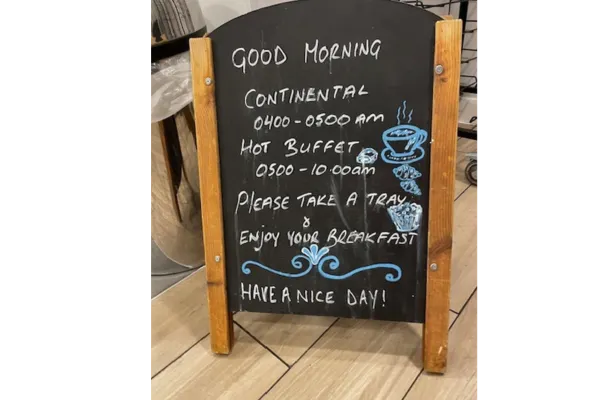 GOOD MORNING
CONTINENTAL
0400 - 0500 am
HOT BUFFET
0500 - 10:00am
PLEASE TAKE A TRAY
&
ENJOY YOUR BREAKFAST
HAVE A NICE DAY!